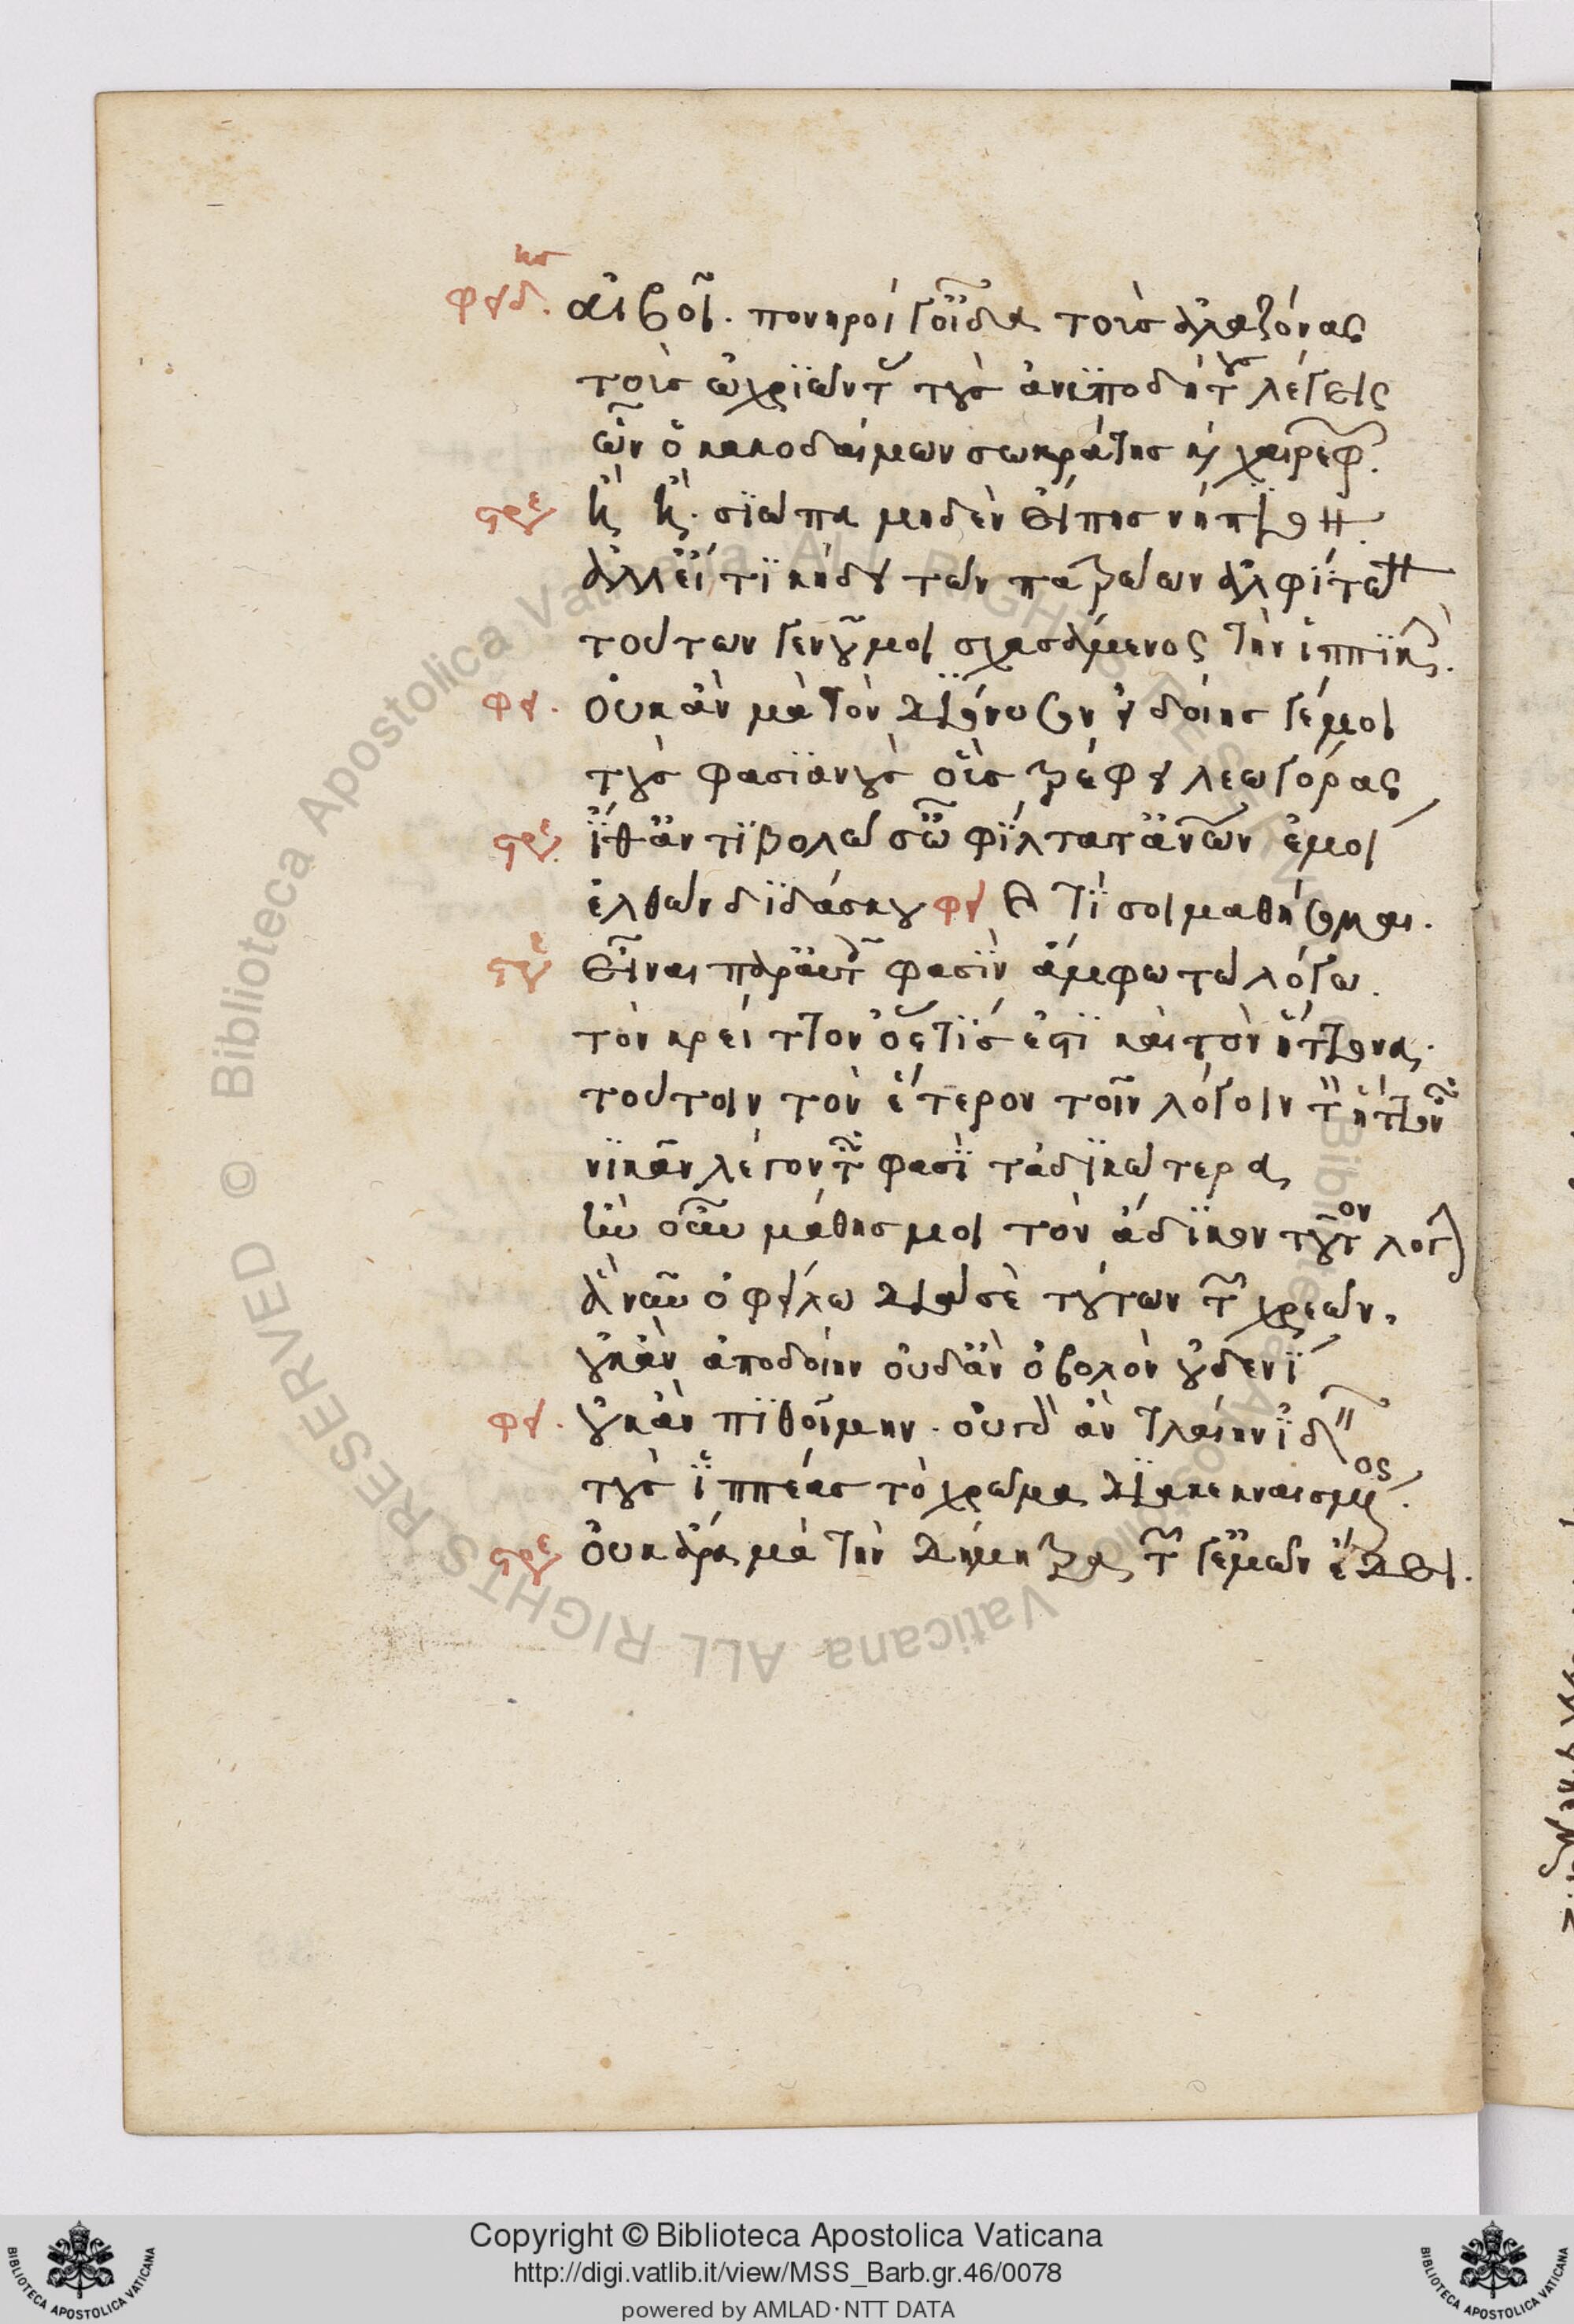 φειδ. αἰβοῖ. πονηροί γ' οἶδα τοὺς ἀλαζόνας
τοὺς ὠχριῶντας τοὺς ἀνυποδήτους λέγεις
ὧν ὁ κακοδαίμων σωκράτης καὶ χαιρεφῶν.
στρε ἢ ἢ. σιώπα μηδὲν εἴπης νήπιον.
ἀλλ' εἴ τι κήδει τῶν πατρώων ἀλφίτων
τούτων γενοῦ μοι σχασάμενος τὴν ἱππικήν.
φει. οὐκ ἂν μὰ τὸν διόνυσον εἰ δοίης γέ μοι
τοὺς φασιανοὺς οὓς τρέφει λεωγόρας
στρε. ἴθ' ἀντιβολῶ σ' ὦ φίλτατ' ἀνθρώπων ἐμοὶ
ἐλθὼν διδάσκου φει καὶ τί σοι μαθήσομαι.
στρε εἶναι παρ' αὐτοῖς φασὶν ἄμφω τὼ λόγω.
τὸν κρείττον' ὅστις ἐστὶ καὶ τὸν ἥττονα.
τούτοιν τὸν ἕτερον τοῖν λόγοιν τὸν ἥττονα
νικᾶν λέγοντά φασι τἀδικώτερα
ἢν οὖν μάθης μοι τὸν ἄδικον τοῦτον λόγον
ἃ νῦν ὀφείλω διὰ σὲ τούτων τῶν χρεῶν.
οὐκ ἂν ἀποδοίην οὐδ' ἂν ὀβολὸν οὐδενί
φει. οὐκ ἂν πιθοίμην. οὐ γὰρ ἂν τλαίην ἰδεῖν
τοὺς ἱππέας τὸ χρῶμα διακεκναισμένος.
στρε οὐκ ἄρα μὰ τὴν δήμητρα τῶν γ' ἐμῶν ἔδει.
Copyright © Biblioteca Apostolica Vaticana
http://digi.vatlib.it/view/MSS_Barb.gr.46/0078
powered by AMLAD·NTT DATA